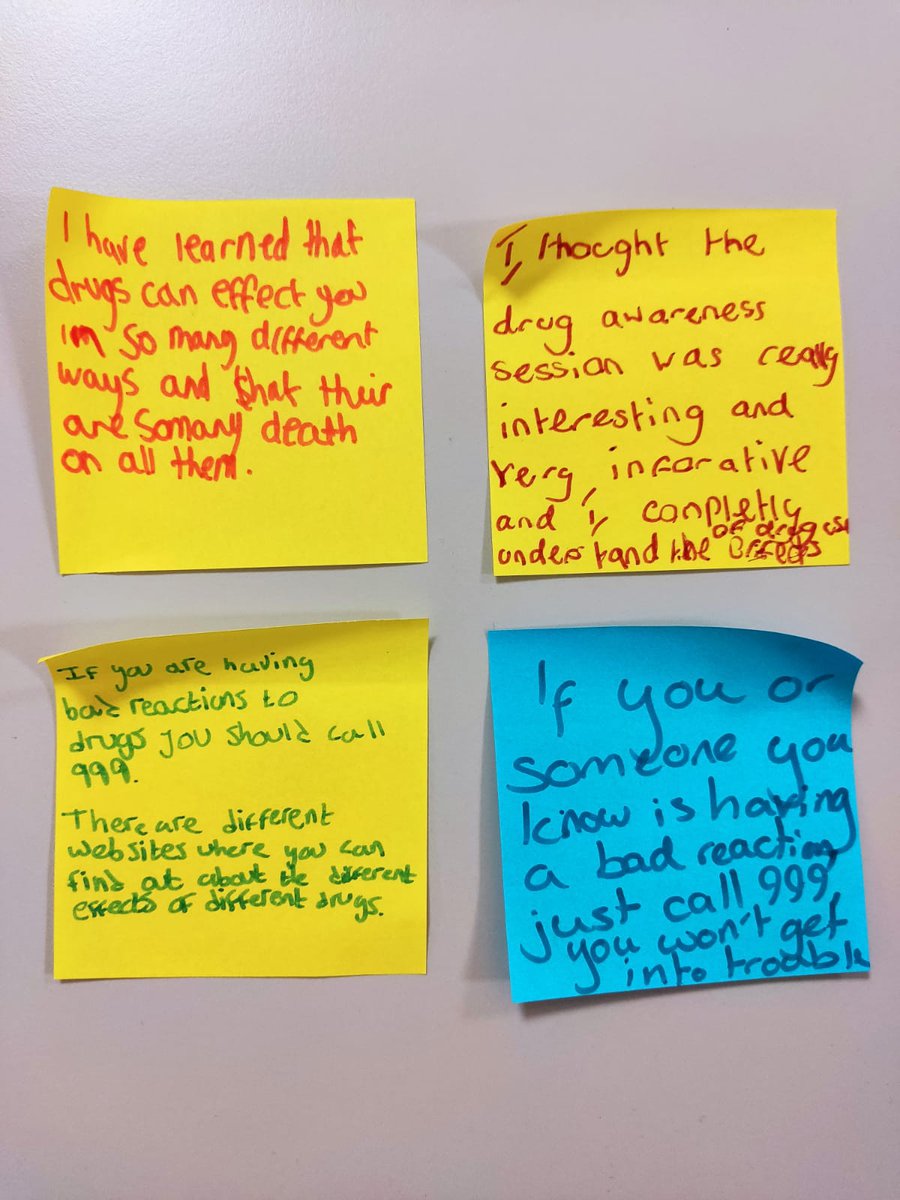 I have learned that
drugs can effect you
in so many different
ways and that their
are somany death
on all them.
I, thooght the
drug awareness
session was really
interesting and
very, inforative
and I, conpletly
understand the effects
of drug use
If you are having
bad reactions to
drugs you should call
999.
There are different
websites where you can
find out about the different
effects of different drugs.
If you or
someone you
know is having
a bad reaction,
just call 999,
you won't get
into trooble